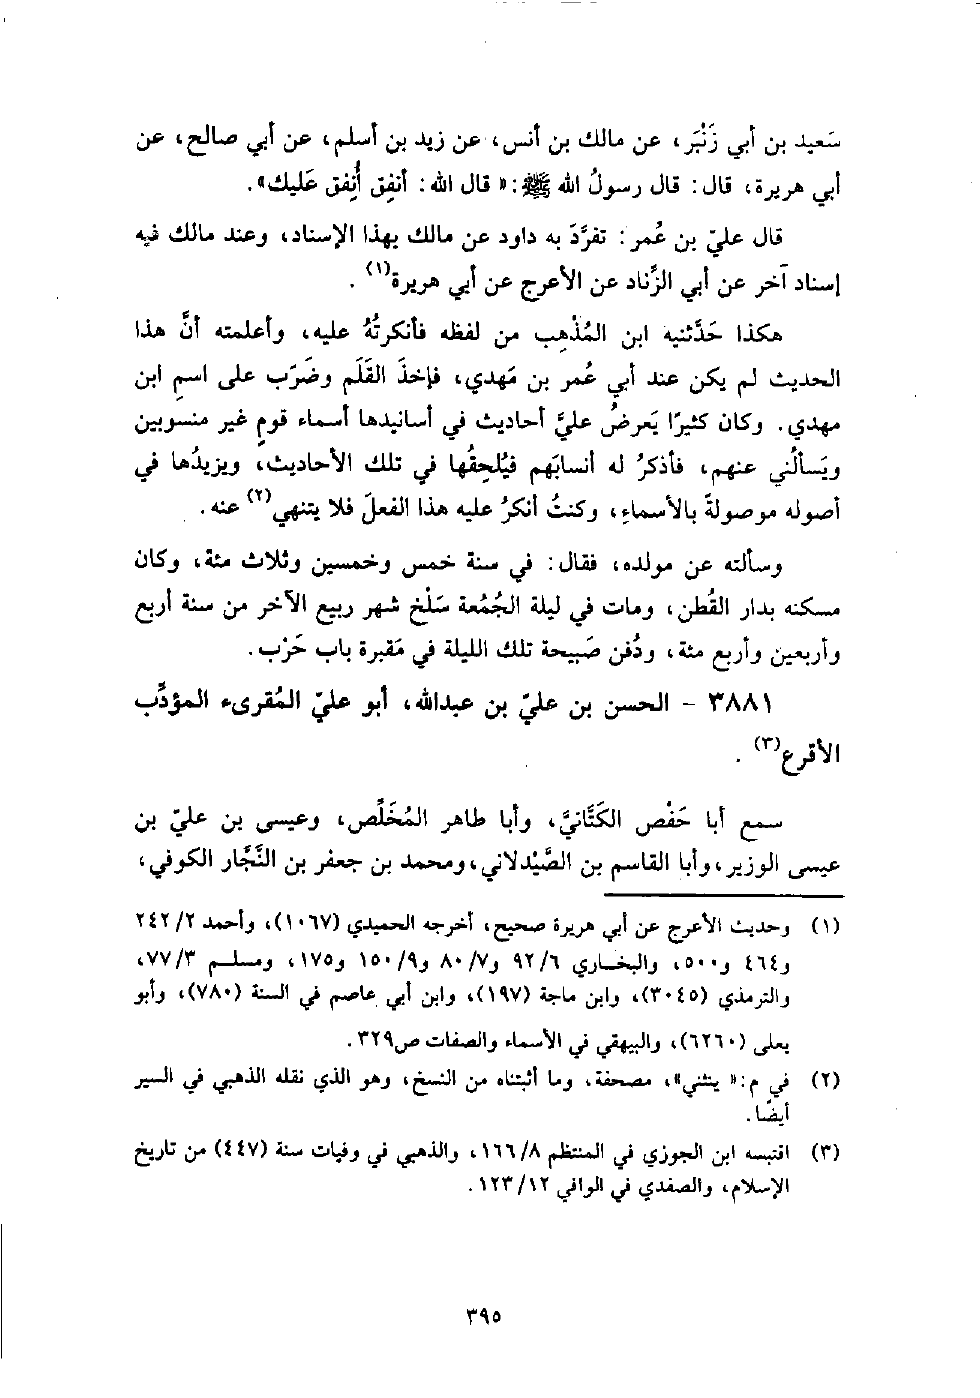 سَعيد بن أبي زَنْبَر، عن مالك بن أنس، عن زيد بن أسلم، عن أبي صالح، عن
أبي هريرة، قال: قال رسولُ الله ﷺ: «قال الله: أنفِق أُنفِق عَليك».
قال عليّ بن عُمر: تفرَّدَ به داود عن مالك بهذا الإسناد، وعند مالك فيه
إسناد آخر عن أبي الزِّناد عن الأعرج عن أبي هريرة(١).
هكذا حَدَّثنيه ابن المُذْهِب من لفظه فأنكرتُهُ عليه، وأعلمته أنَّ هذا
الحديث لم يكن عند أبي عُمر بن مَهدي، فإخذَ القَلَم وضَرَب على اسم ابن
مهدي. وكان كثيرًا يَعرضُ عليَّ أحاديث في أسانيدها أسماء قومٍ غير منسوبين
ويَسألُني عنهم، فأذكرُ له أنسابَهم فيُلحِقُها في تلك الأحاديث، ويزيدُها في
أصوله موصولةً بالأسماءِ، وكنتُ أنكرُ عليه هذا الفعلَ فلا يَنتهي(٢) عنه.
وسألته عن مولده، فقال: في سنة خمس وخمسين وثلاث مئة، وكان
مسكنه بدار القُطن، ومات في ليلة الجُمُعة سَلْخ شهر ربيع الآخر من سنة أربع
وأربعين وأربع مئة، ودُفن صَبيحة تلك الليلة في مَقبرة باب حَرْب.
٣٨٨١ - الحسن بن عليّ بن عبدالله، أبو عليّ المُقرىء المؤدِّب
الأقرع(٣).
سمع أبا حَفْص الكَتَّانيَّ، وأبا طاهر المُخَلِّص، وعيسى بن عليّ بن
عيسى الوزير، وأبا القاسم بن الصَّيْدلاني، ومحمد بن جعفر بن النَّجَّار الكوفي،
(١) وحديث الأعرج عن أبي هريرة صحيح، أخرجه الحميدي (١٠٦٧)، وأحمد ٢/ ٢٤٢
و٤٦٤ و٥٠٠، والبخاري ٦/ ٩٢ و٧/ ٨٠ و٩/ ١٥٠ و١٧٥، ومسلم ٣/ ٧٧،
والترمذي (٣٠٤٥)، وابن ماجة (١٩٧)، وابن أبي عاصم في السنة (٧٨٠)، وأبو
يعلى (٦٢٦٠)، والبيهقي في الأسماء والصفات ص٣٢٩.
(٢) في م: «ينثني»، مصحفة، وما أثبتناه من النسخ، وهو الذي نقله الذهبي في السير
أيضًا.
(٣) اقتبسه ابن الجوزي في المنتظم ٨/ ١٦٦، والذهبي في وفيات سنة (٤٤٧) من تاريخ
الإسلام، والصفدي في الوافي ١٢/ ١٢٣.
٣٩٥